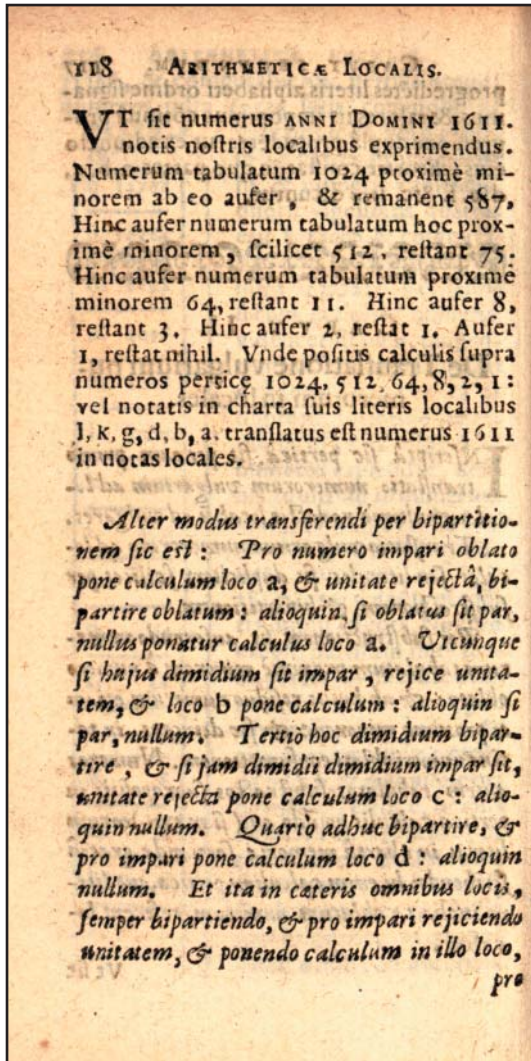 118 ARITHMETICÆ LOCALIS.
VT ſit numerus ANNI DOMINI 1611.
notis noſtris localibus exprimendus.
Numerum tabulatum 1024 proximè mi-
norem ab eo aufer, & remanent 587,
Hinc aufer numerum tabulatum hoc prox-
imè minorem, ſcilicet 512, reſtant 75.
Hinc aufer numerum tabulatum proximè
minorem 64, reſtant 11. Hinc aufer 8,
reſtant 3. Hinc aufer 2, reſtat 1. Aufer
1, reſtat nihil. Vnde poſitis calculis ſupra
numeros perticę 1024, 512, 64, 8, 2, 1:
vel notatis in charta ſuis literis localibus
l, k, g, d, b, a. tranſlatus eſt numerus 1611
in notas locales.
Alter modus transferendi per bipartitio-
nem ſic eſt: Pro numero impari oblato
pone calculum loco a, & unitate rejectâ, bi-
partire oblatum: alioquin ſi oblatus ſit par,
nullus ponatur calculus loco a. Utcunque
ſi hujus dimidium ſit impar, rejice unita-
tem, & loco b pone calculum: alioquin ſi
par, nullum. Tertiò hoc dimidium bipar-
tire, & ſi jam dimidii dimidium impar ſit,
unitate rejectâ pone calculum loco c: alio-
quin nullum. Quartò adhuc bipartire, &
pro impari pone calculum loco d: alioquin
nullum. Et ita in cæteris omnibus locis,
ſemper bipartiendo, & pro impari rejiciendo
unitatem, & ponendo calculum in illo loco,
pro